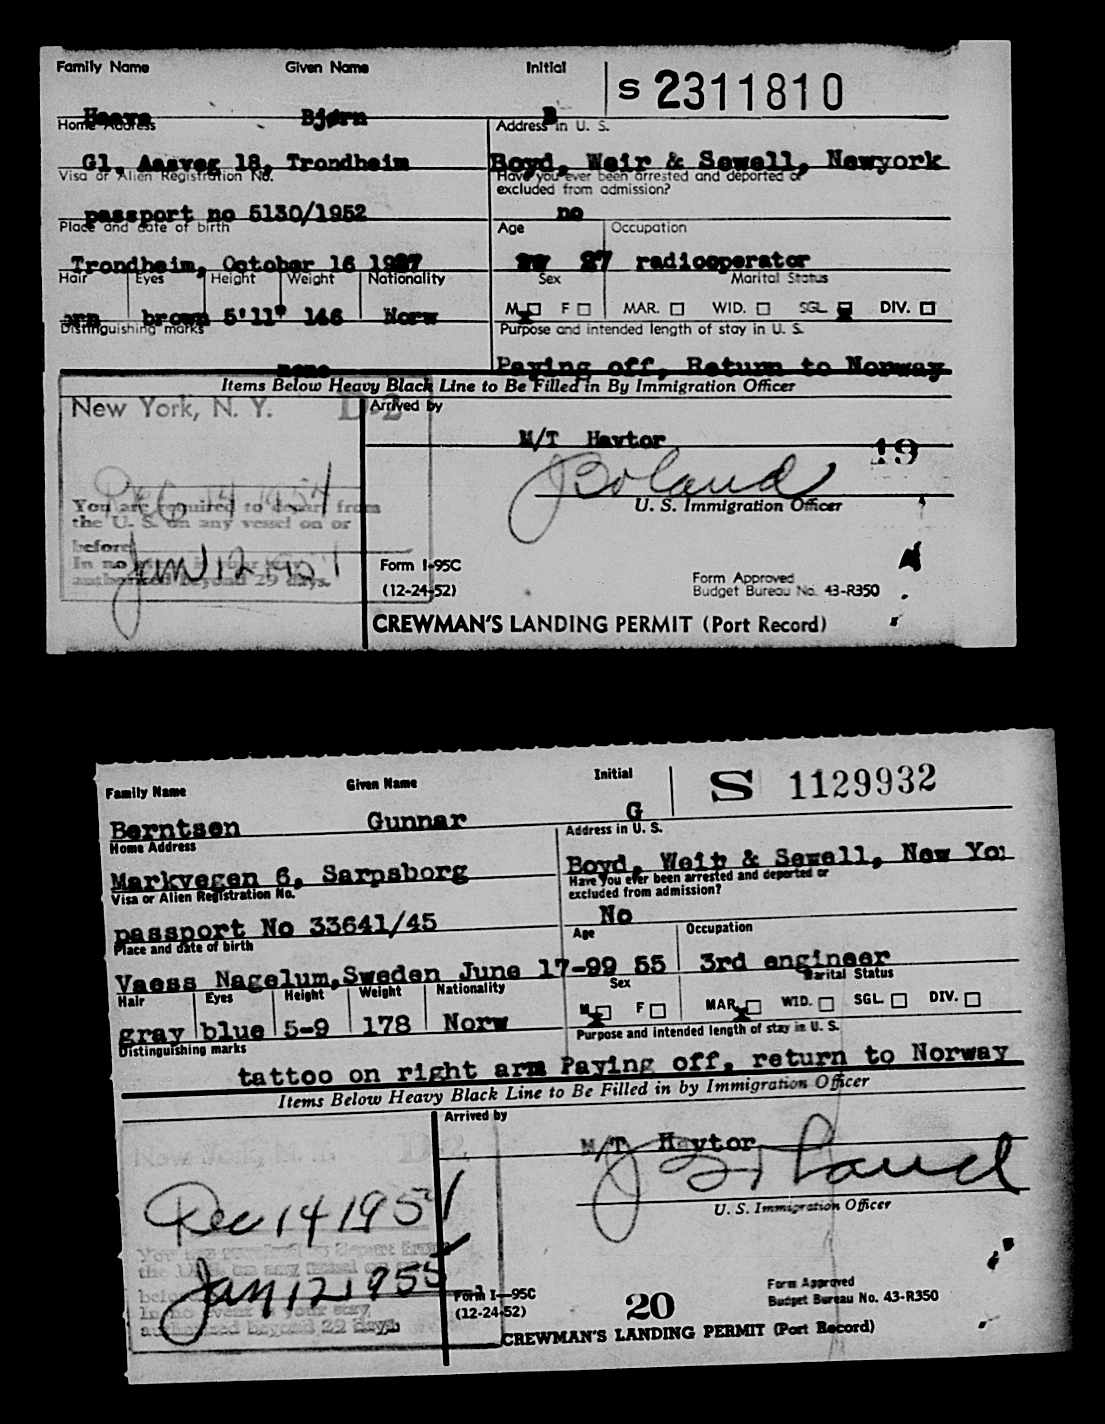 Family Name Given Name Initial S 2311810
Bjørn B
Home Address Address in U. S.
Gl, Aasveg 18, Trondheim Boyd, Weir & Sewell, Newyork
Visa or Alien Registration No. Have you ever been arrested and deported or
excluded from admission?
passport no 5130/1952 no
Place and date of birth Age Occupation
Trondheim, October 16 1927 27 radiooperator
Hair Eyes Height Weight Nationality Sex Marital Status
M F MAR. WID. SGL. DIV.
brown 5'11" 146 Norw
Distinguishing marks Purpose and intended length of stay in U. S.
none Paying off, Return to Norway
Items Below Heavy Black Line to Be Filled in By Immigration Officer
New York, N. Y. D-2 Arrived by
M/T Havtor 19
J Boland
Dec 14 1954
You are required to depart from U. S. Immigration Officer
the U. S. on any vessel on or
before
Jan 12 195
In no event is your stay
authorized beyond 29 days.
Form I-95C
(12-24-52)
Form Approved
Budget Bureau No. 43-R350
CREWMAN'S LANDING PERMIT (Port Record)
Family Name Given Name Initial S 1129932
Berntsen Gunnar G
Home Address Address in U. S.
Markvegen 6, Sarpsborg Boyd, Weir & Sewell, New Yo
Visa or Alien Registration No. Have you ever been arrested and deported or
excluded from admission?
passport No 33641/45 No
Place and date of birth Age Occupation
Vaess Nagelum, Sweden June 17-99 55 3rd engineer
Hair Eyes Height Weight Nationality Sex Marital Status
M F MAR. WID. SGL. DIV.
gray blue 5-9 178 Norw
Distinguishing marks Purpose and intended length of stay in U. S.
tattoo on right arm Paying off, return to Norway
Items Below Heavy Black Line to Be Filled in by Immigration Officer
New York, N. Y. D-2 Arrived by
M/T Havtor
J Boland
Dec 14 1954
U. S. Immigration Officer
You are required to depart from
the U. S. on any vessel on or
before
Jan 12 1955
In no event is your stay
authorized beyond 29 days.
Form I-95C
(12-24-52)
20
Form Approved
Budget Bureau No. 43-R350
CREWMAN'S LANDING PERMIT (Port Record)